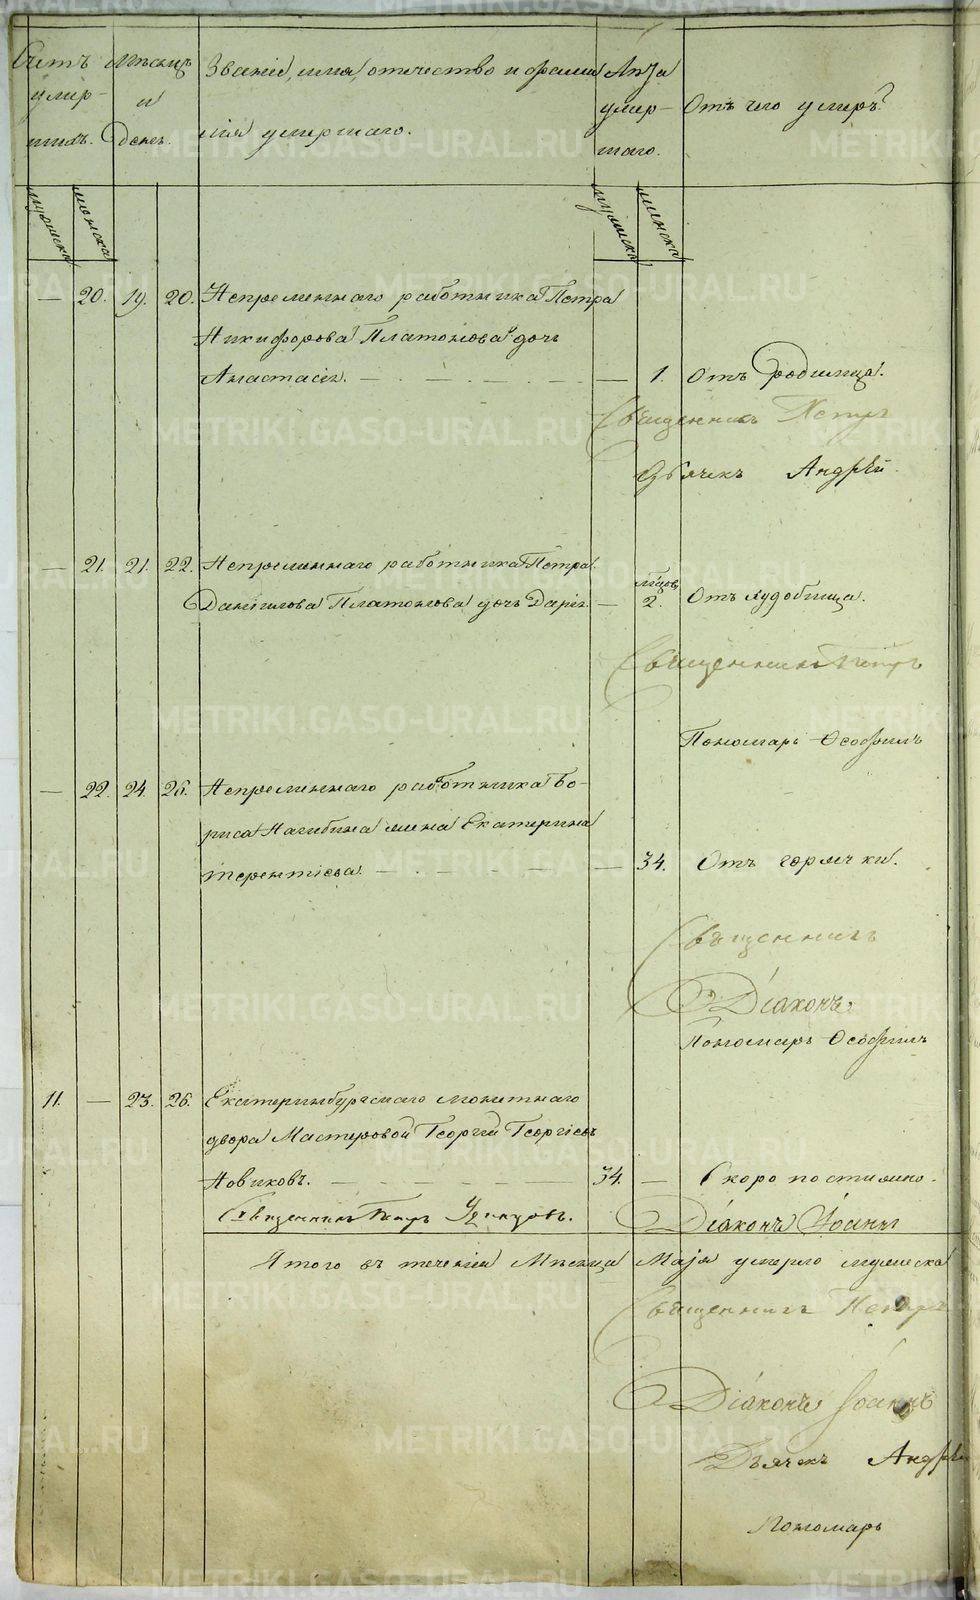 Счетъ умер- шихъ.
Мѣсяцъ и День.
Званіе, имя, отечество и фами-
лія умершаго.
Лѣта умер- шаго.
Отъ чего умеръ?
мужеска женска мужеска женска
— 20. 19. 20. Непременнаго работника Петра
Никифорова Платонова дочь
Анастасія. — — 1. Отъ родимца.
Священникъ Петръ
Дьячекъ Андрѣй
— 21. 21. 22. Непременнаго работника Петра
Данилова Платонова дочь Дарія. — 2. Отъ худобища.
Священникъ Петръ
Пономарь Ѳеофилъ
— 22. 24. 25. Непременнаго работника Бо-
риса Нагибина жена Екатерина
терентіева. — — 34. Отъ горячки.
Священникъ
Діаконъ
Пономарь Ѳеофилъ
11. — 23. 26. Екатеринбургскаго монетнаго
двора Мастеровой Георгій Георгіевъ
Новиковъ. — 34. — Скоропостижно.
Священникъ Петръ
Діаконъ Іоаннъ
Итого въ теченіи Мѣсяца Маія умерло мужеска
Священникъ Петръ
Діаконъ Іоаннъ
Дьячекъ Андрѣй
Пономарь
METRIKI.GASO-URAL.RU